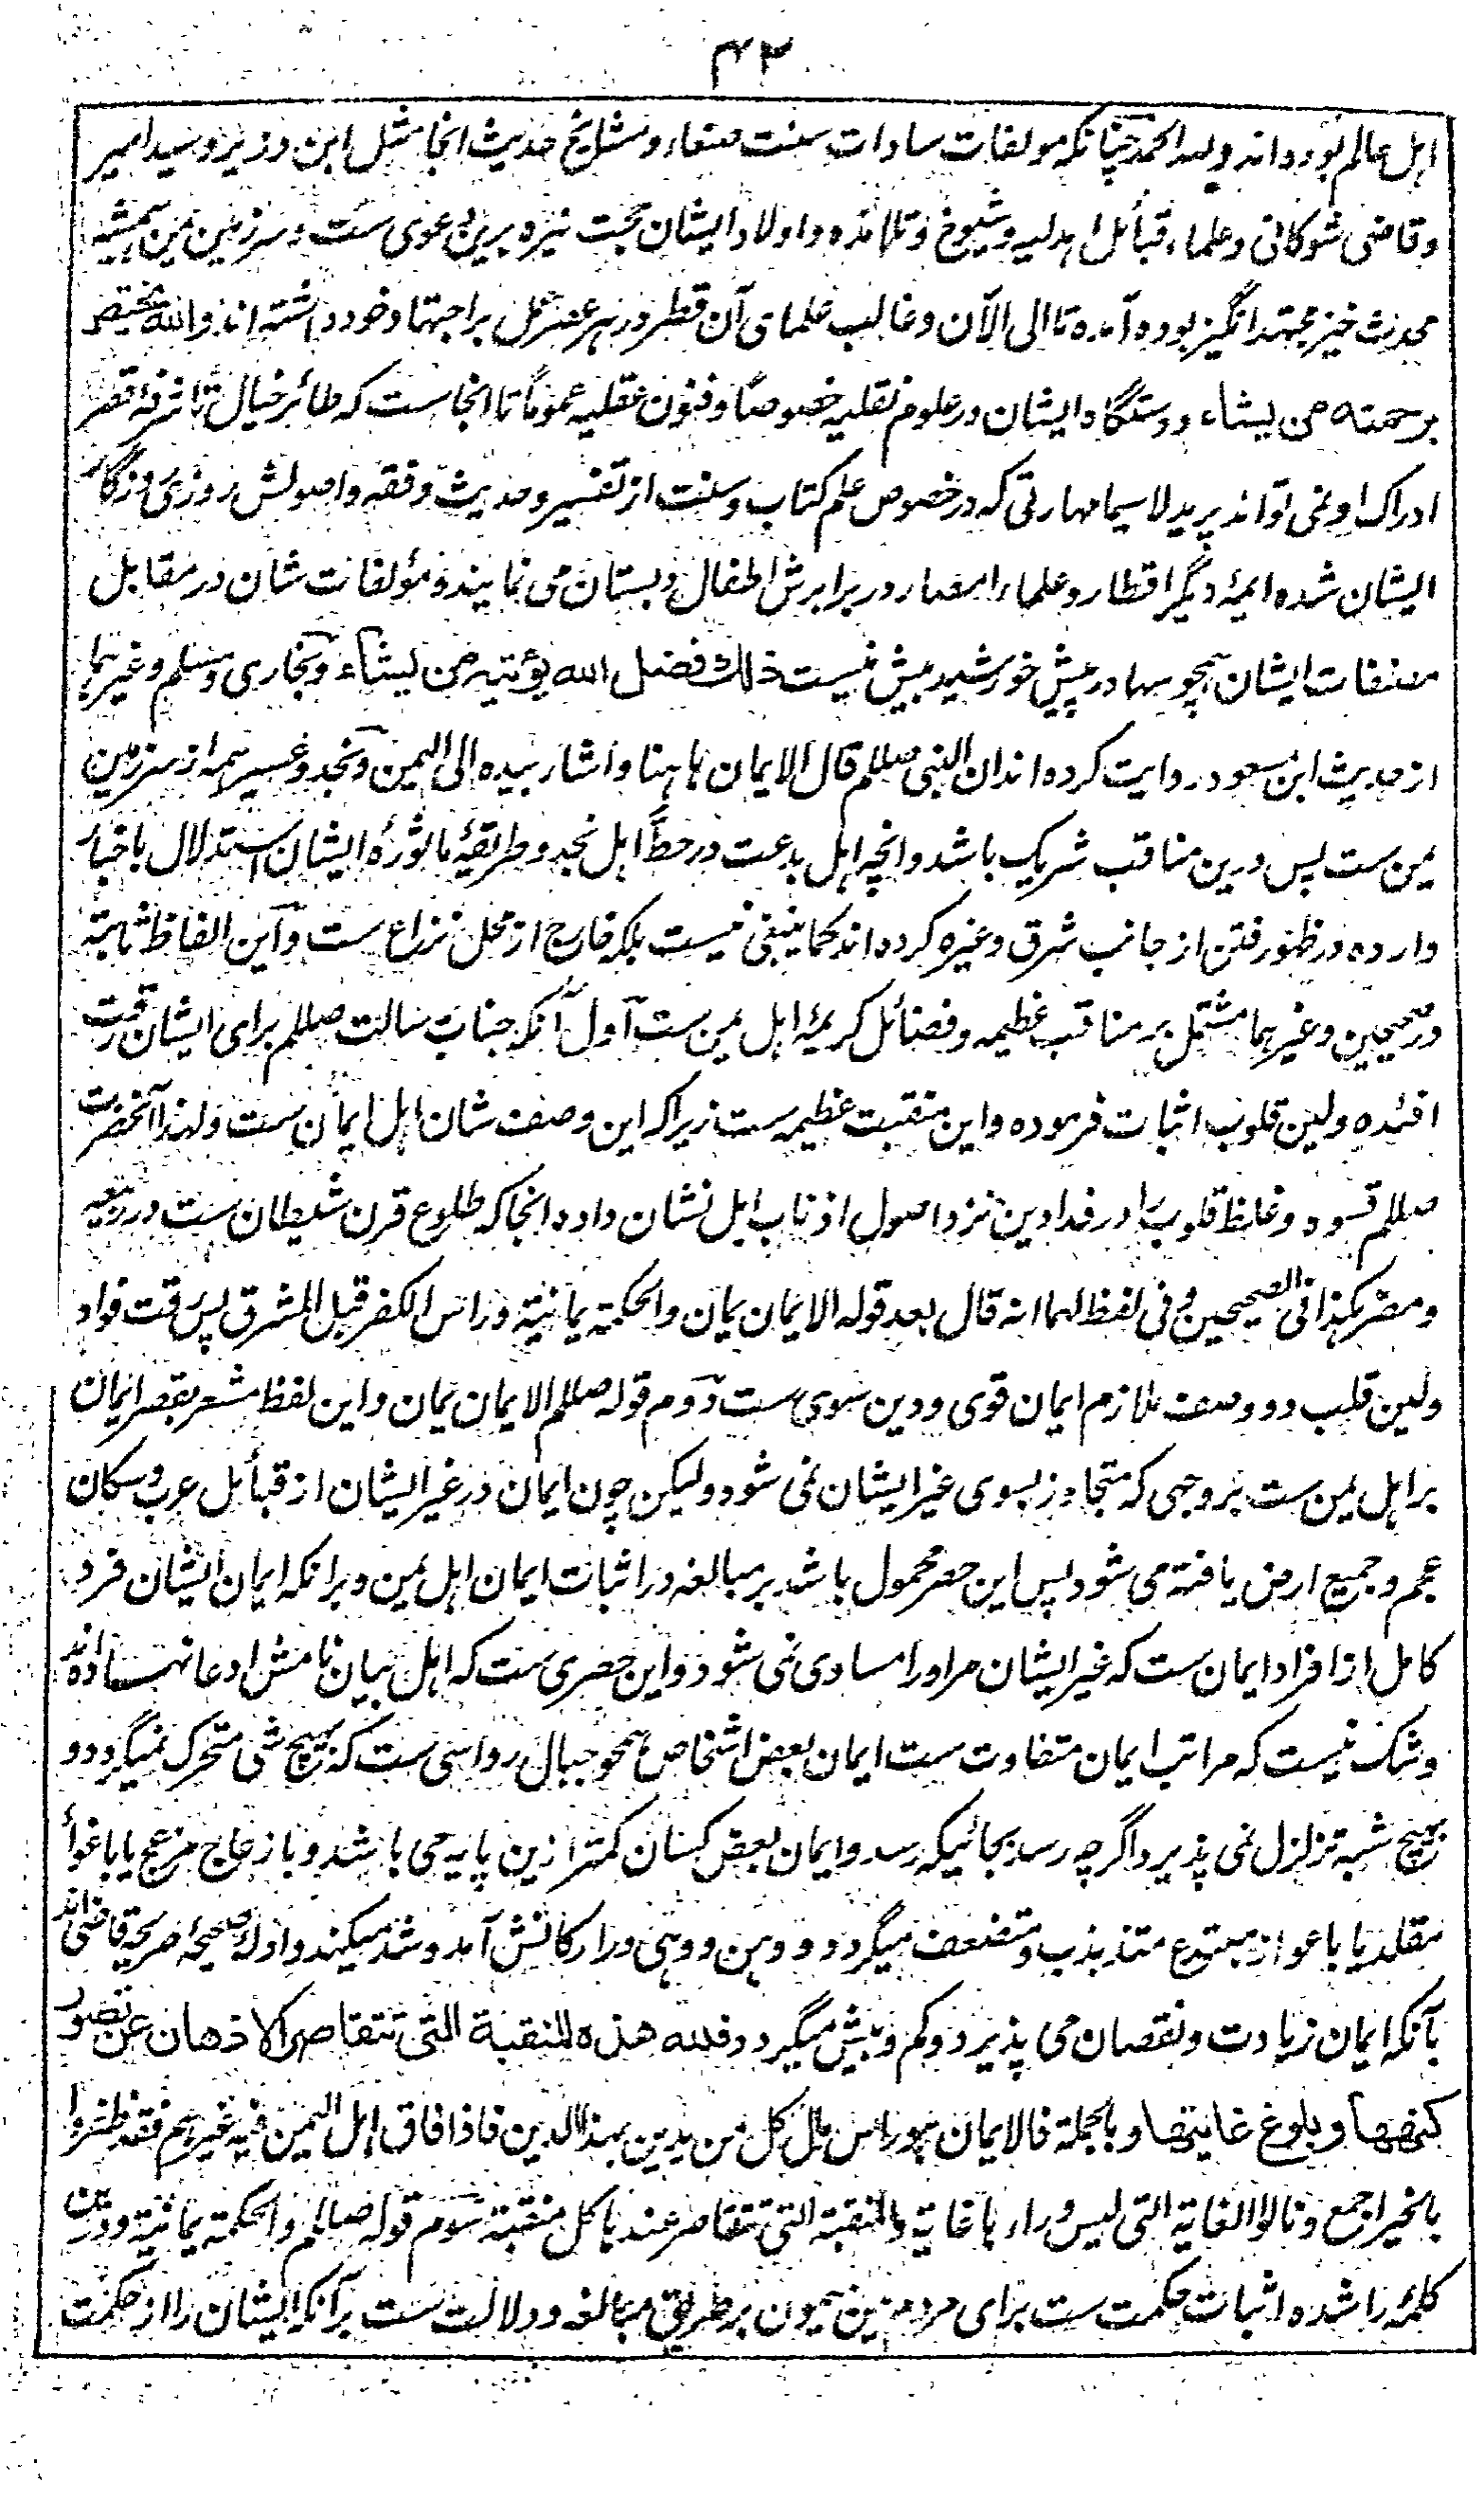 ۴۲
اہل عالم بوده اند ولله الحمد چنانکه مولفات سادات سنت صنعاء و مشایخ حدیث آنجا مثل ابن وزیر و سید امیر
و قاضی شوکانی و علماء قبائل اہدلیه و شیوخ و تلامذه و اولاد ایشان حجت نیره برین دعوی ست و سرزمین یمن ہمیشه
محدث خیز مجتهد انگیز بوده آمده تا الی الآن و غالب علمای آن قطر در ہر عصر عمل بر اجتہاد خود داشته اند والله یختص
برحمته من یشاء و دستگاه ایشان در علوم نقلیه خصوصاً و فنون عقلیه عموماً تا انجاست که طائر خیال تا شرفهٔ قصر
ادراک او نمی تواند پرید لا سیما مہارتی که در خصوص علم کتاب و سنت از تفسیر و حدیث و فقه و اصولش روزی روزگار
ایشان شده ایمهٔ دیگر اقطار و علماء امصار در برابرش اطفال دبستان می نمایند و مؤلفات شان در مقابل
مصنفات ایشان ہمچو سہا در پیش خورشید بیش نیست ذلك فضل الله یؤتیه من یشاء و بخاری و مسلم و غیرہما
از حدیث ابن مسعود روایت کرده اند ان النبی صللم قال الایمان ہاہنا و اشار بیده الی الیمن و نجد و غیره ہمه از سرزمین
یمن ست پس درین مناقب شریک باشد و انچه اہل بدعت در حط اہل نجد و طریقهٔ ماثورهٔ ایشان استدلال باخبار
وارده در ظهور فتن از جانب شرق و غیره کرده اند کما ینبغی نیست بلکه خارج از محل نزاع ست و این الفاظ ثابته
در صحیحین و غیرہما مشتمل بر مناقب عظیمه و فضائل کریمهٔ اہل یمن ست اول آنکه جناب رسالت صللم برای ایشان رقت
افئده و لین قلوب اثبات فرموده و این منقبت عظیمه ست زیرا که این وصف شان اہل ایمان ست و لہذا آنحضرت
صللم قسوه و غلظ قلوب را در فدادین نزد اصول اذناب ابل نشان داده انجا که طلوع قرن شیطان ست در ربیعه
و مضر ہکذا فی الصحیحین و فی لفظ لہما انه قال بعد قوله الایمان یمان والحکمة یمانیة و راس الکفر قبل المشرق پس رقت فواد
و لین قلب دو وصف ملازم ایمان قوی و دین سوی ست دوم قوله صللم الایمان یمان و این لفظ مشعر بقصر ایمان
بر اہل یمن ست بر وجہی که متجاوز بسوی غیر ایشان نمی شود و لیکن چون ایمان در غیر ایشان از قبائل عرب و سکان
عجم و جمیع ارض یافته می شود پس این حصر محمول باشد بر مبالغه در اثبات ایمان اہل یمن و بر آنکه ایمان ایشان فرد
کامل از افراد ایمان ست که غیر ایشان مر او را مساوی نمی شود و این حصری ست که اہل بیان نامش ادعا نہاده اند
و شک نیست که مراتب ایمان متفاوت ست ایمان بعض اشخاص ہمچو جبال رواسی ست که بہیچ شی متحرک نمیگردد و
بہیچ شبه تزلزل نمی پذیرد اگر چه رسد بجائیکه رسد و ایمان بعض کسان کمتر ازین پایه می باشد و بازعاج مزعج یا باغوأ
مقلد یا باعواز مبتدع متذبذب و متضعف میگردد و وہن و وہی در ارکانش آمد و شد میکند و ادلهٔ صحیحهٔ صریحه قاضی اند
بآنکه ایمان زیادت و نقصان می پذیرد و کم و بیش میگردد فلله هذه المنقبة التی تتقاصر الاذهان عن تصور
کنهها و بلوغ غایتها و بالجملة فالایمان ہو راس مال کل من یدین بہذا الدین فاذا فاق اہل الیمن فیه غیرہم فقد ظفروا
بالخیر اجمع و نالوا الغایة التی لیس وراءہا غایة والمنقبة التی تتقاصر عندہا کل منقبة سوم قوله صللم والحکمة یمانیة و درین
کلمهٔ راشده اثبات حکمت ست برای مردم یمن میمون بر طریق مبالغه و دلالت ست بر آنکه ایشان را از حکمت